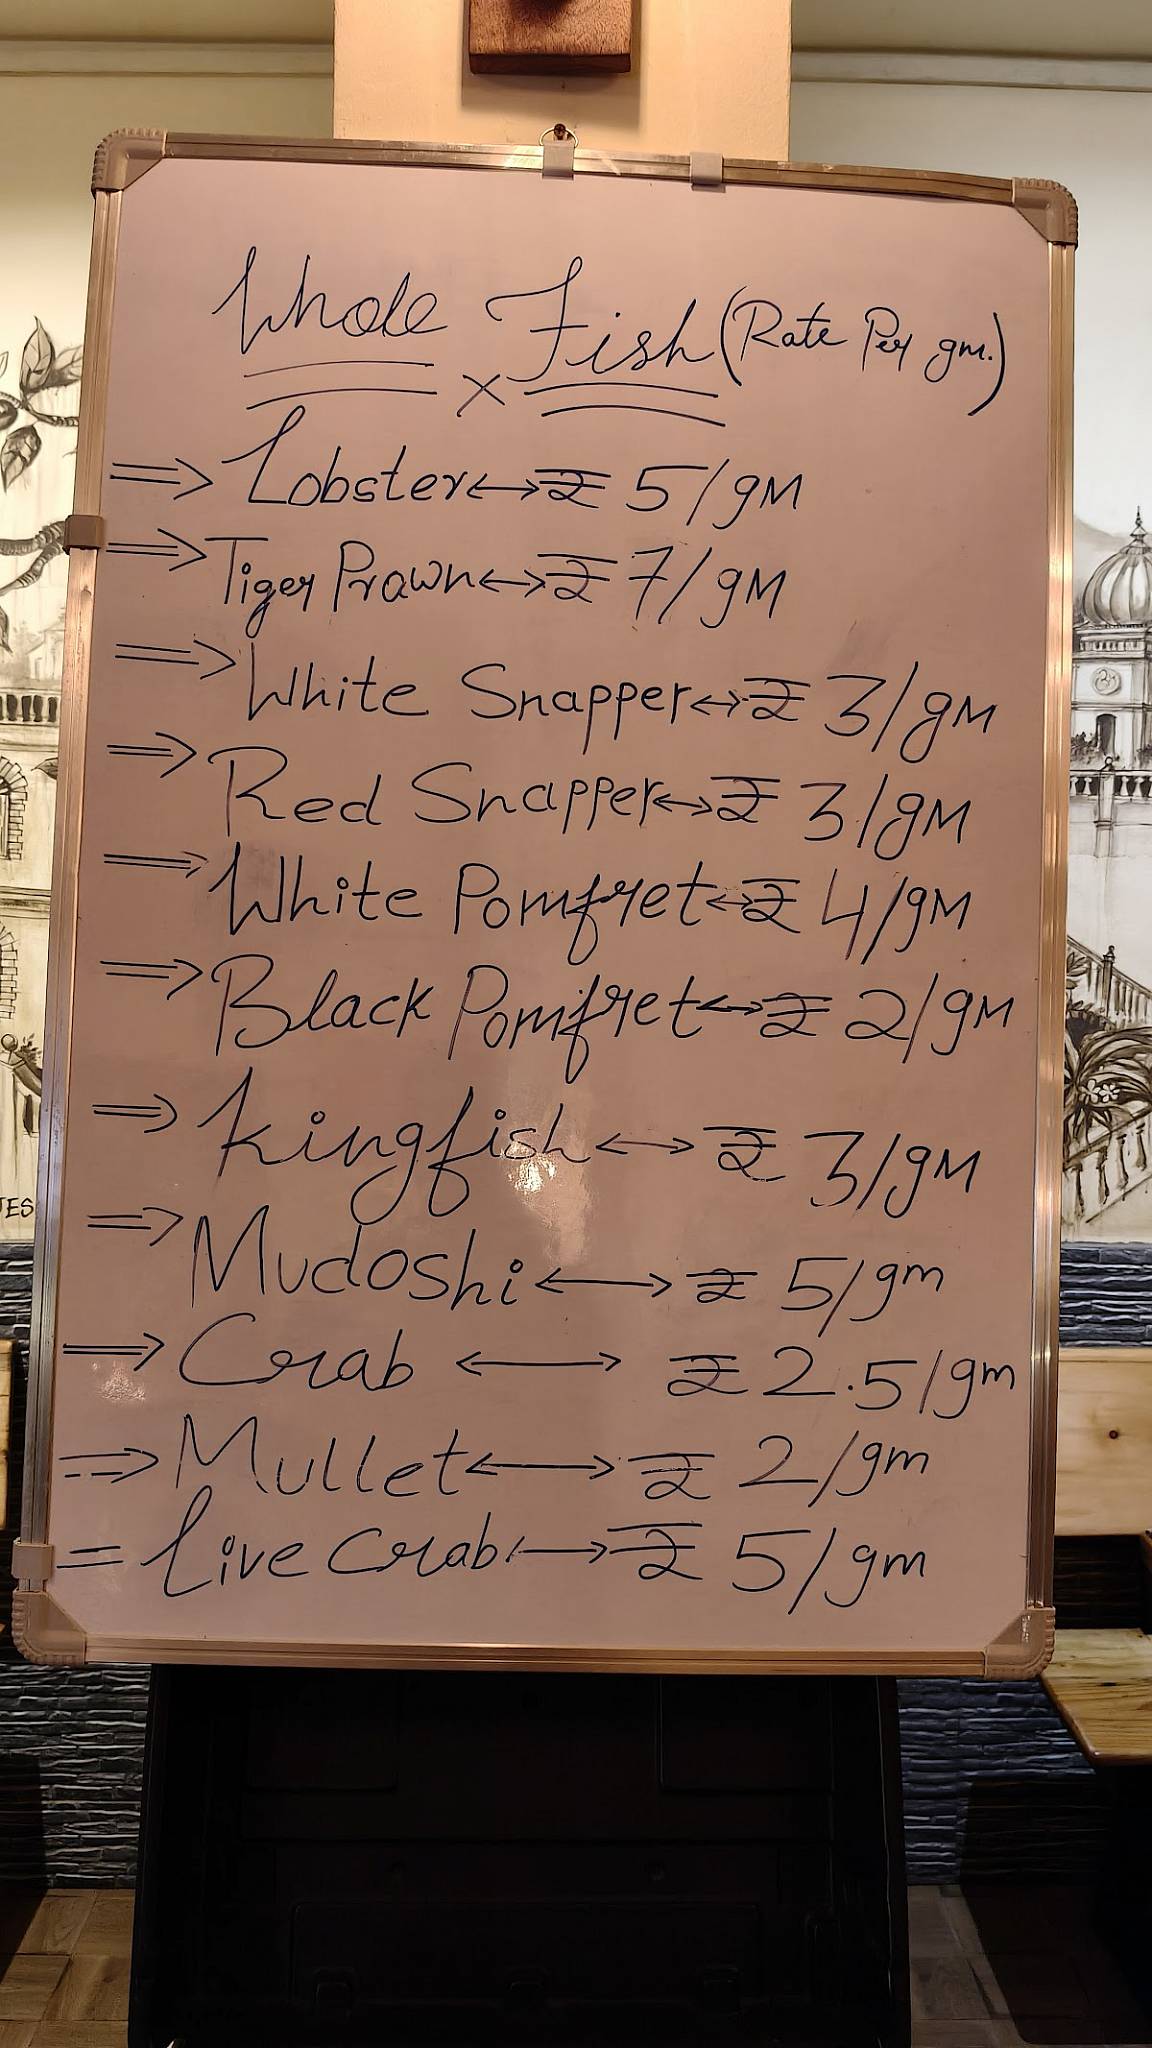 Whole Fish (Rate Per gm.)
x
⇒ Lobster ↔ ₹ 5/gm
⇒ Tiger Prawn ↔ ₹ 7/gm
⇒ White Snapper ↔ ₹ 3/gm
⇒ Red Snapper ↔ ₹ 3/gm
⇒ White Pomfret ↔ ₹ 4/gm
⇒ Black Pomfret ↔ ₹ 2/gm
⇒ Kingfish ↔ ₹ 3/gm
⇒ Mudoshi ↔ ₹ 5/gm
⇒ Crab ↔ ₹ 2.5/gm
⇒ Mullet ↔ ₹ 2/gm
= Live Crab ↔ ₹ 5/gm